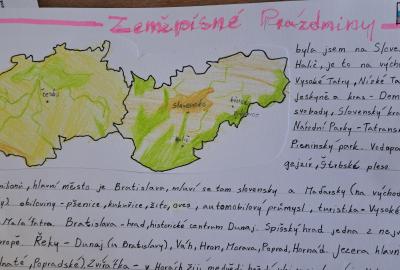 Zeměpisné Prázdniny
byla jsem na Slove
Halič, je to na vých
Vysoké Tatry, Nízké Ta
jeskyně a kras - Dom
svobody, Slovenský kra
Národní Parky - Tatransk
Pieninský park. Vodopa
gejzír, Štrbské pleso.
česko
slovensko
Halič
hlavní město je Bratislava, mluví se tam slovensky a Maďarsky (na výcho
obloviny - pšenice, kukuřice, žito, oves, automobilový průmysl, turistika - Vysoké
Malá Fatra. Bratislava - hrad, historické centrum Dunaj. Spišský hrad jedna z nejv
ropě. Řeky - Dunaj (u Bratislavy), Váh, Hron, Morava, Poprad, Hornád. Jezera hlavn
Popradské) Zvířátka - v Horách žijí medvědi